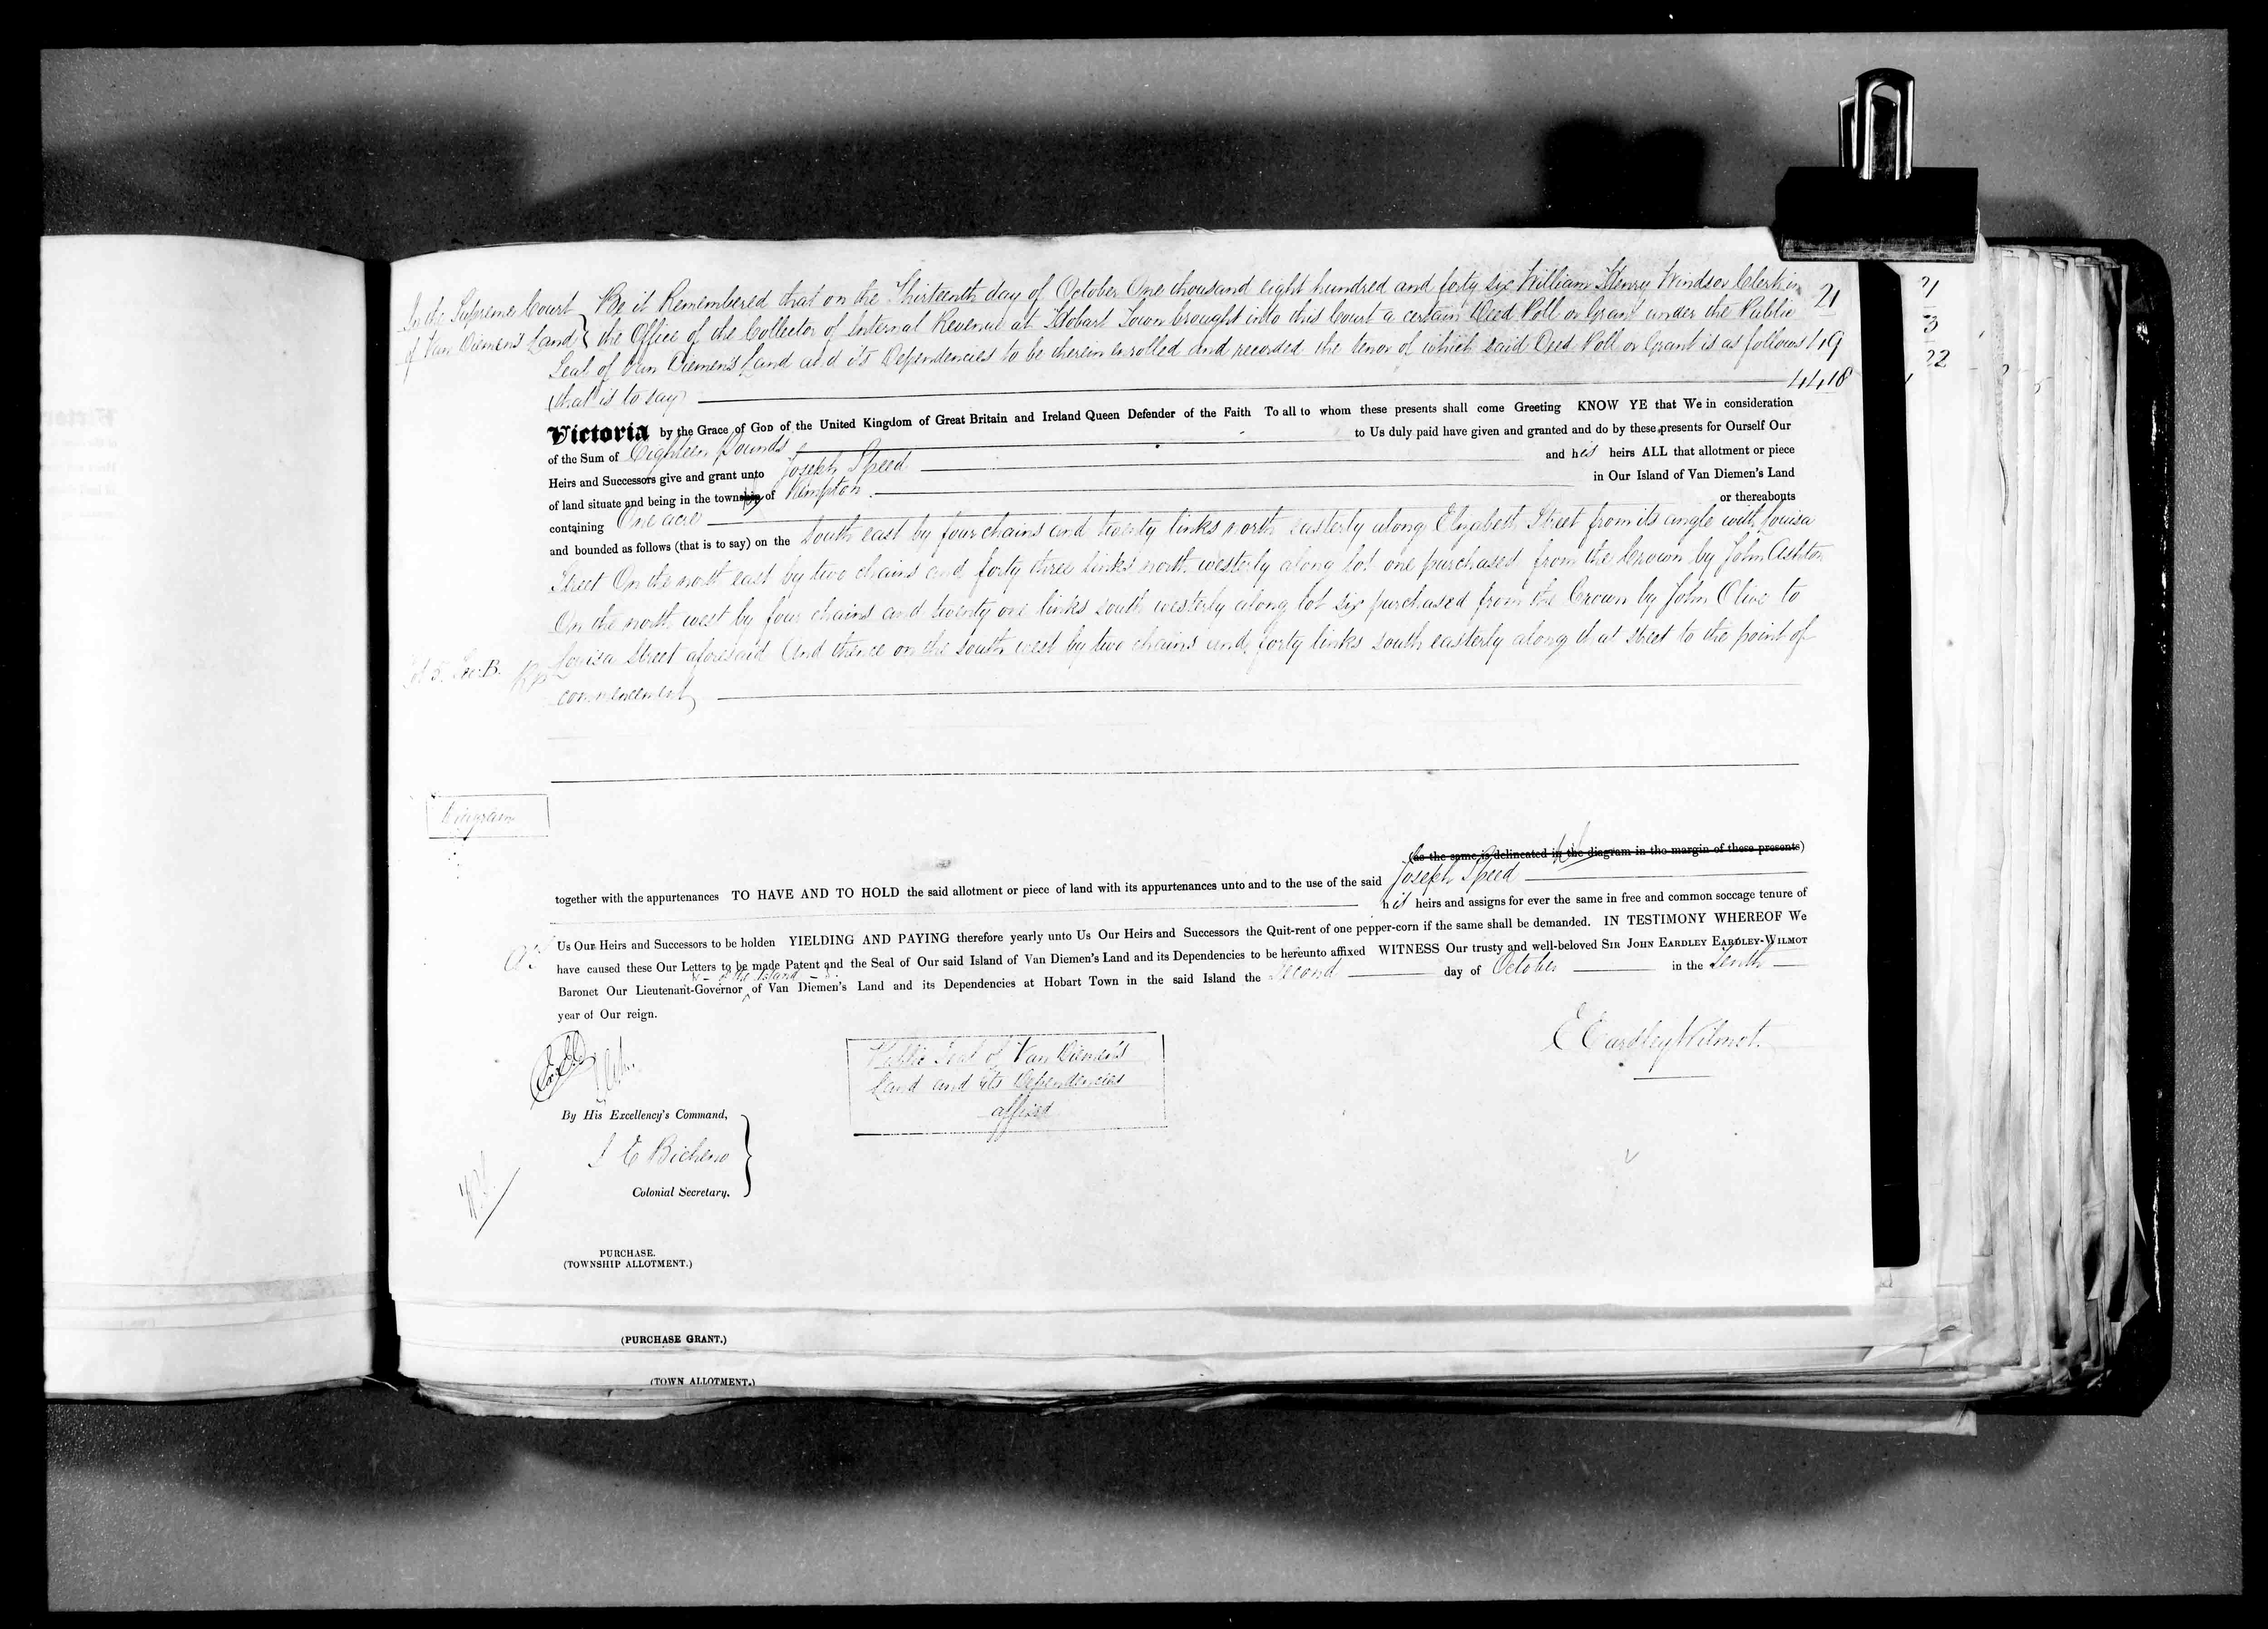 In the Supreme Court of Van Diemen's Land
Be it Remembered that on the Thirteenth day of October One thousand eight hundred and forty six William Henry Windsor Clerk in
the Office of the Collector of Internal Revenue at Hobart Town brought into this Court a certain Deed Poll or Grant under the Public
Seal of Van Diemen's Land and its Dependencies to be therein enrolled and recorded the tenor of which said Deed Poll or Grant is as follows
(that is to say)
21
419
4418
Victoria by the Grace of God of the United Kingdom of Great Britain and Ireland Queen Defender of the Faith To all to whom these presents shall come Greeting KNOW YE that We in consideration
of the Sum of Eighteen Pounds to Us duly paid have given and granted and do by these presents for Ourself Our
Heirs and Successors give and grant unto Joseph Speed and his heirs ALL that allotment or piece
of land situate and being in the township of Kempton in Our Island of Van Diemen's Land
containing One acre or thereabouts
and bounded as follows (that is to say) on the South east by four chains and twenty links north easterly along Elizabeth Street from its angle with Louisa
Street On the north east by two chains and forty three links north westerly along lot one purchased from the Crown by John Ashton
On the north west by four chains and twenty one links south westerly along lot six purchased from the Crown by John Olive to
Louisa Street aforesaid And thence on the south west by two chains and forty links south easterly along that street to the point of
commencement
Lot 5. Sec. B.
Diagram
(as the same is delineated in the diagram in the margin of these presents)
together with the appurtenances TO HAVE AND TO HOLD the said allotment or piece of land with its appurtenances unto and to the use of the said Joseph Speed
his heirs and assigns for ever the same in free and common soccage tenure of
Us Our Heirs and Successors to be holden YIELDING AND PAYING therefore yearly unto Us Our Heirs and Successors the Quit-rent of one pepper-corn if the same shall be demanded. IN TESTIMONY WHEREOF We
have caused these Our Letters to be made Patent and the Seal of Our said Island of Van Diemen's Land and its Dependencies to be hereunto affixed WITNESS Our trusty and well-beloved SIR JOHN EARDLEY EARDLEY-WILMOT
of the Island
Baronet Our Lieutenant-Governor of Van Diemen's Land and its Dependencies at Hobart Town in the said Island the Second day of October in the Tenth
year of Our reign.
E Eardley Wilmot
Public Seal of Van Diemen's
Land and its Dependencies
affixed
By His Excellency's Command,
J E Bicheno
Colonial Secretary.
PURCHASE.
(TOWNSHIP ALLOTMENT.)
(PURCHASE GRANT.)
(TOWN ALLOTMENT.)
21
3
22